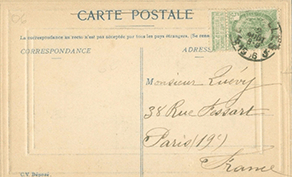 CARTE POSTALE
La correspondance au recto n'est pas acceptée par tous les pays étrangers. (Se rense
CORRESPONDANCE
ADRESSE
Monsieur
38 Rue Pessart
Paris (19e)
France
U.V. Déposé